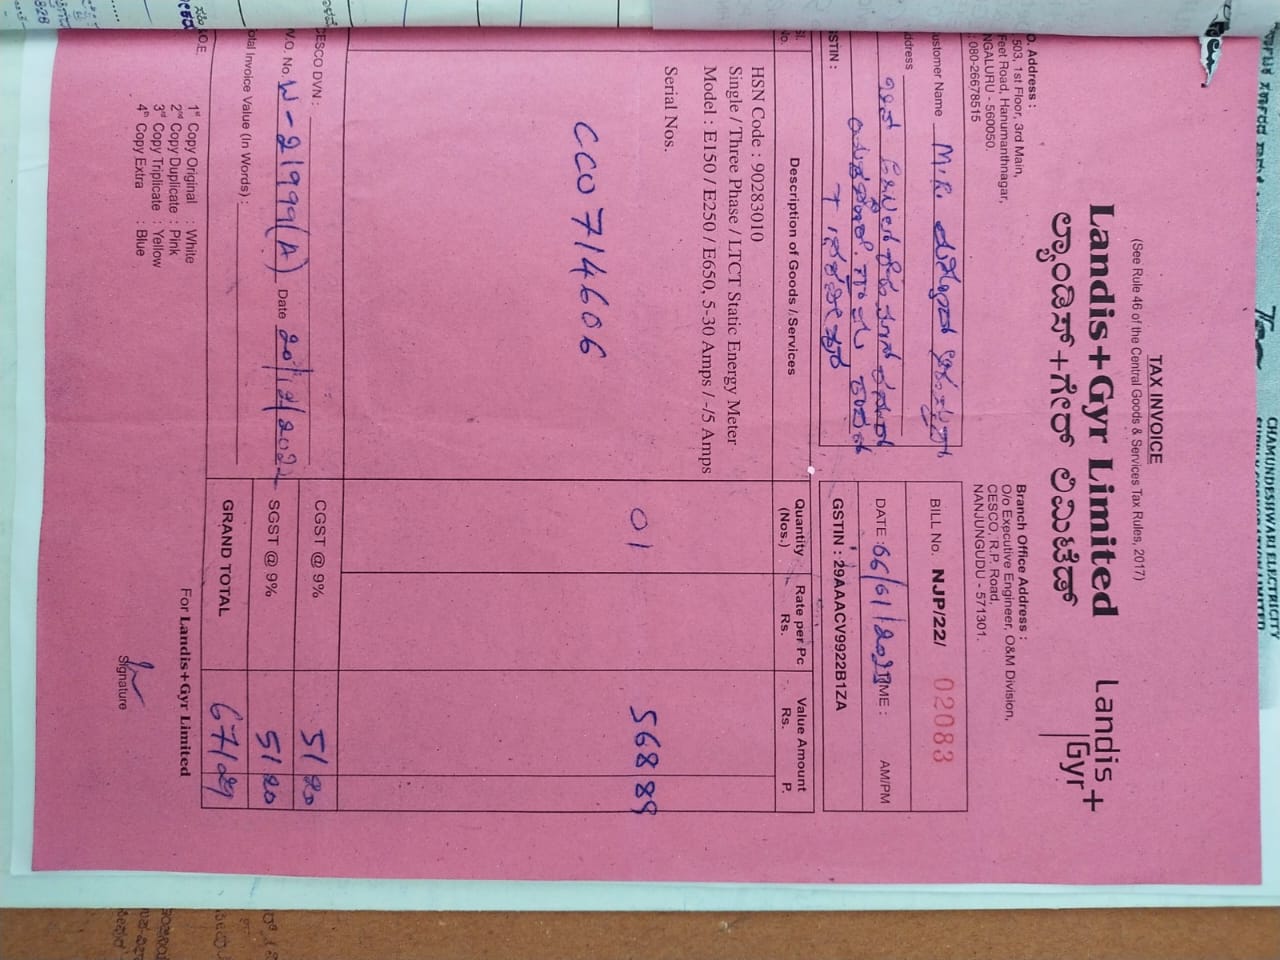 TAX INVOICE
(See Rule 46 of the Central Goods & Services Tax Rules, 2017)
Landis+Gyr Limited
ಲ್ಯಾಂಡಿಸ್+ಗೀರ್ ಲಿಮಿಟೆಡ್
Landis+
Gyr
O. Address :
503, 1st Floor, 3rd Main,
Feet Road, Hanumanthnagar,
NGALURU - 560050
: 080-26678515
Branch Office Address :
O/o Executive Engineer, O&M Division,
CESCO, R.P. Road,
NANJUNGUDU - 571301.
ustomer Name M.R.
ddress
STIN :
BILL No. NJP/22/ 02083
DATE : TIME : AM/PM
GSTIN : 29AAACV9922B1ZA
Sl. No. Description of Goods / Services Quantity (Nos.) Rate per Pc Rs. Value Amount Rs. P.
HSN Code : 90283010
Single / Three Phase / LTCT Static Energy Meter
Model : E150 / E250 / E650, 5-30 Amps / -/5 Amps
Serial Nos.
01 568 89
CC0714606
CESCO DVN :
CGST @ 9% 51 20
W.O. No. W-21999(A) Date 20/12/2022
SGST @ 9% 51 20
otal Invoice Value (In Words) :
GRAND TOTAL 671 29
&O.E.
For Landis+Gyr Limited
1st Copy Original : White
2nd Copy Duplicate : Pink
3rd Copy Triplicate : Yellow
4th Copy Extra : Blue
Signature
CHAMUNDESHWARI ELECTRICITY